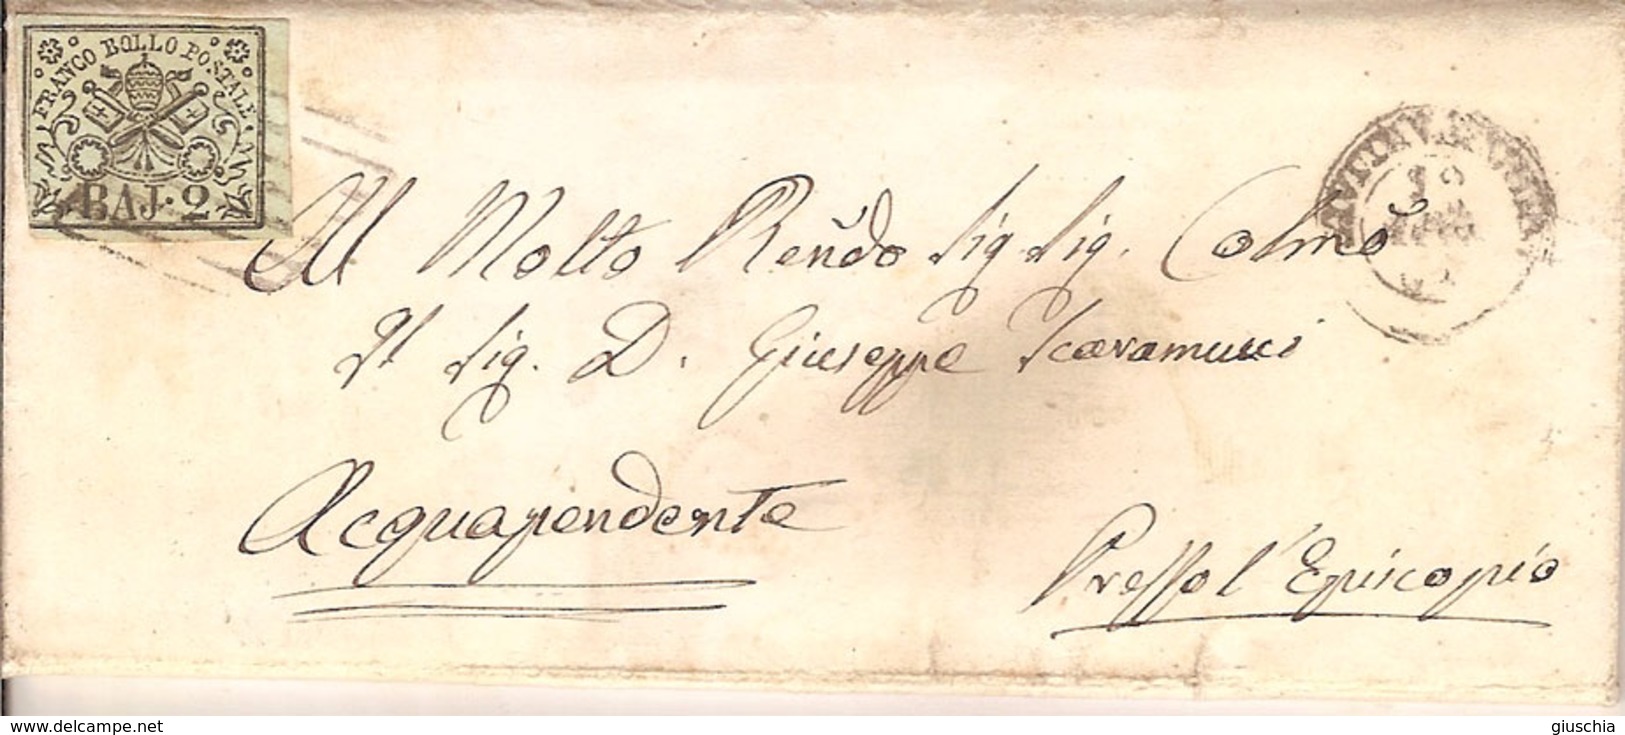 FRANCO BOLLO POSTALE
BAJ. 2
Al Molto Reñdo Sig. Sig. Colmo
Il Sig. D. Giuseppe Scaramucci
Acquapendente
Presso l'Episcopio
delcampe.net
giuschia